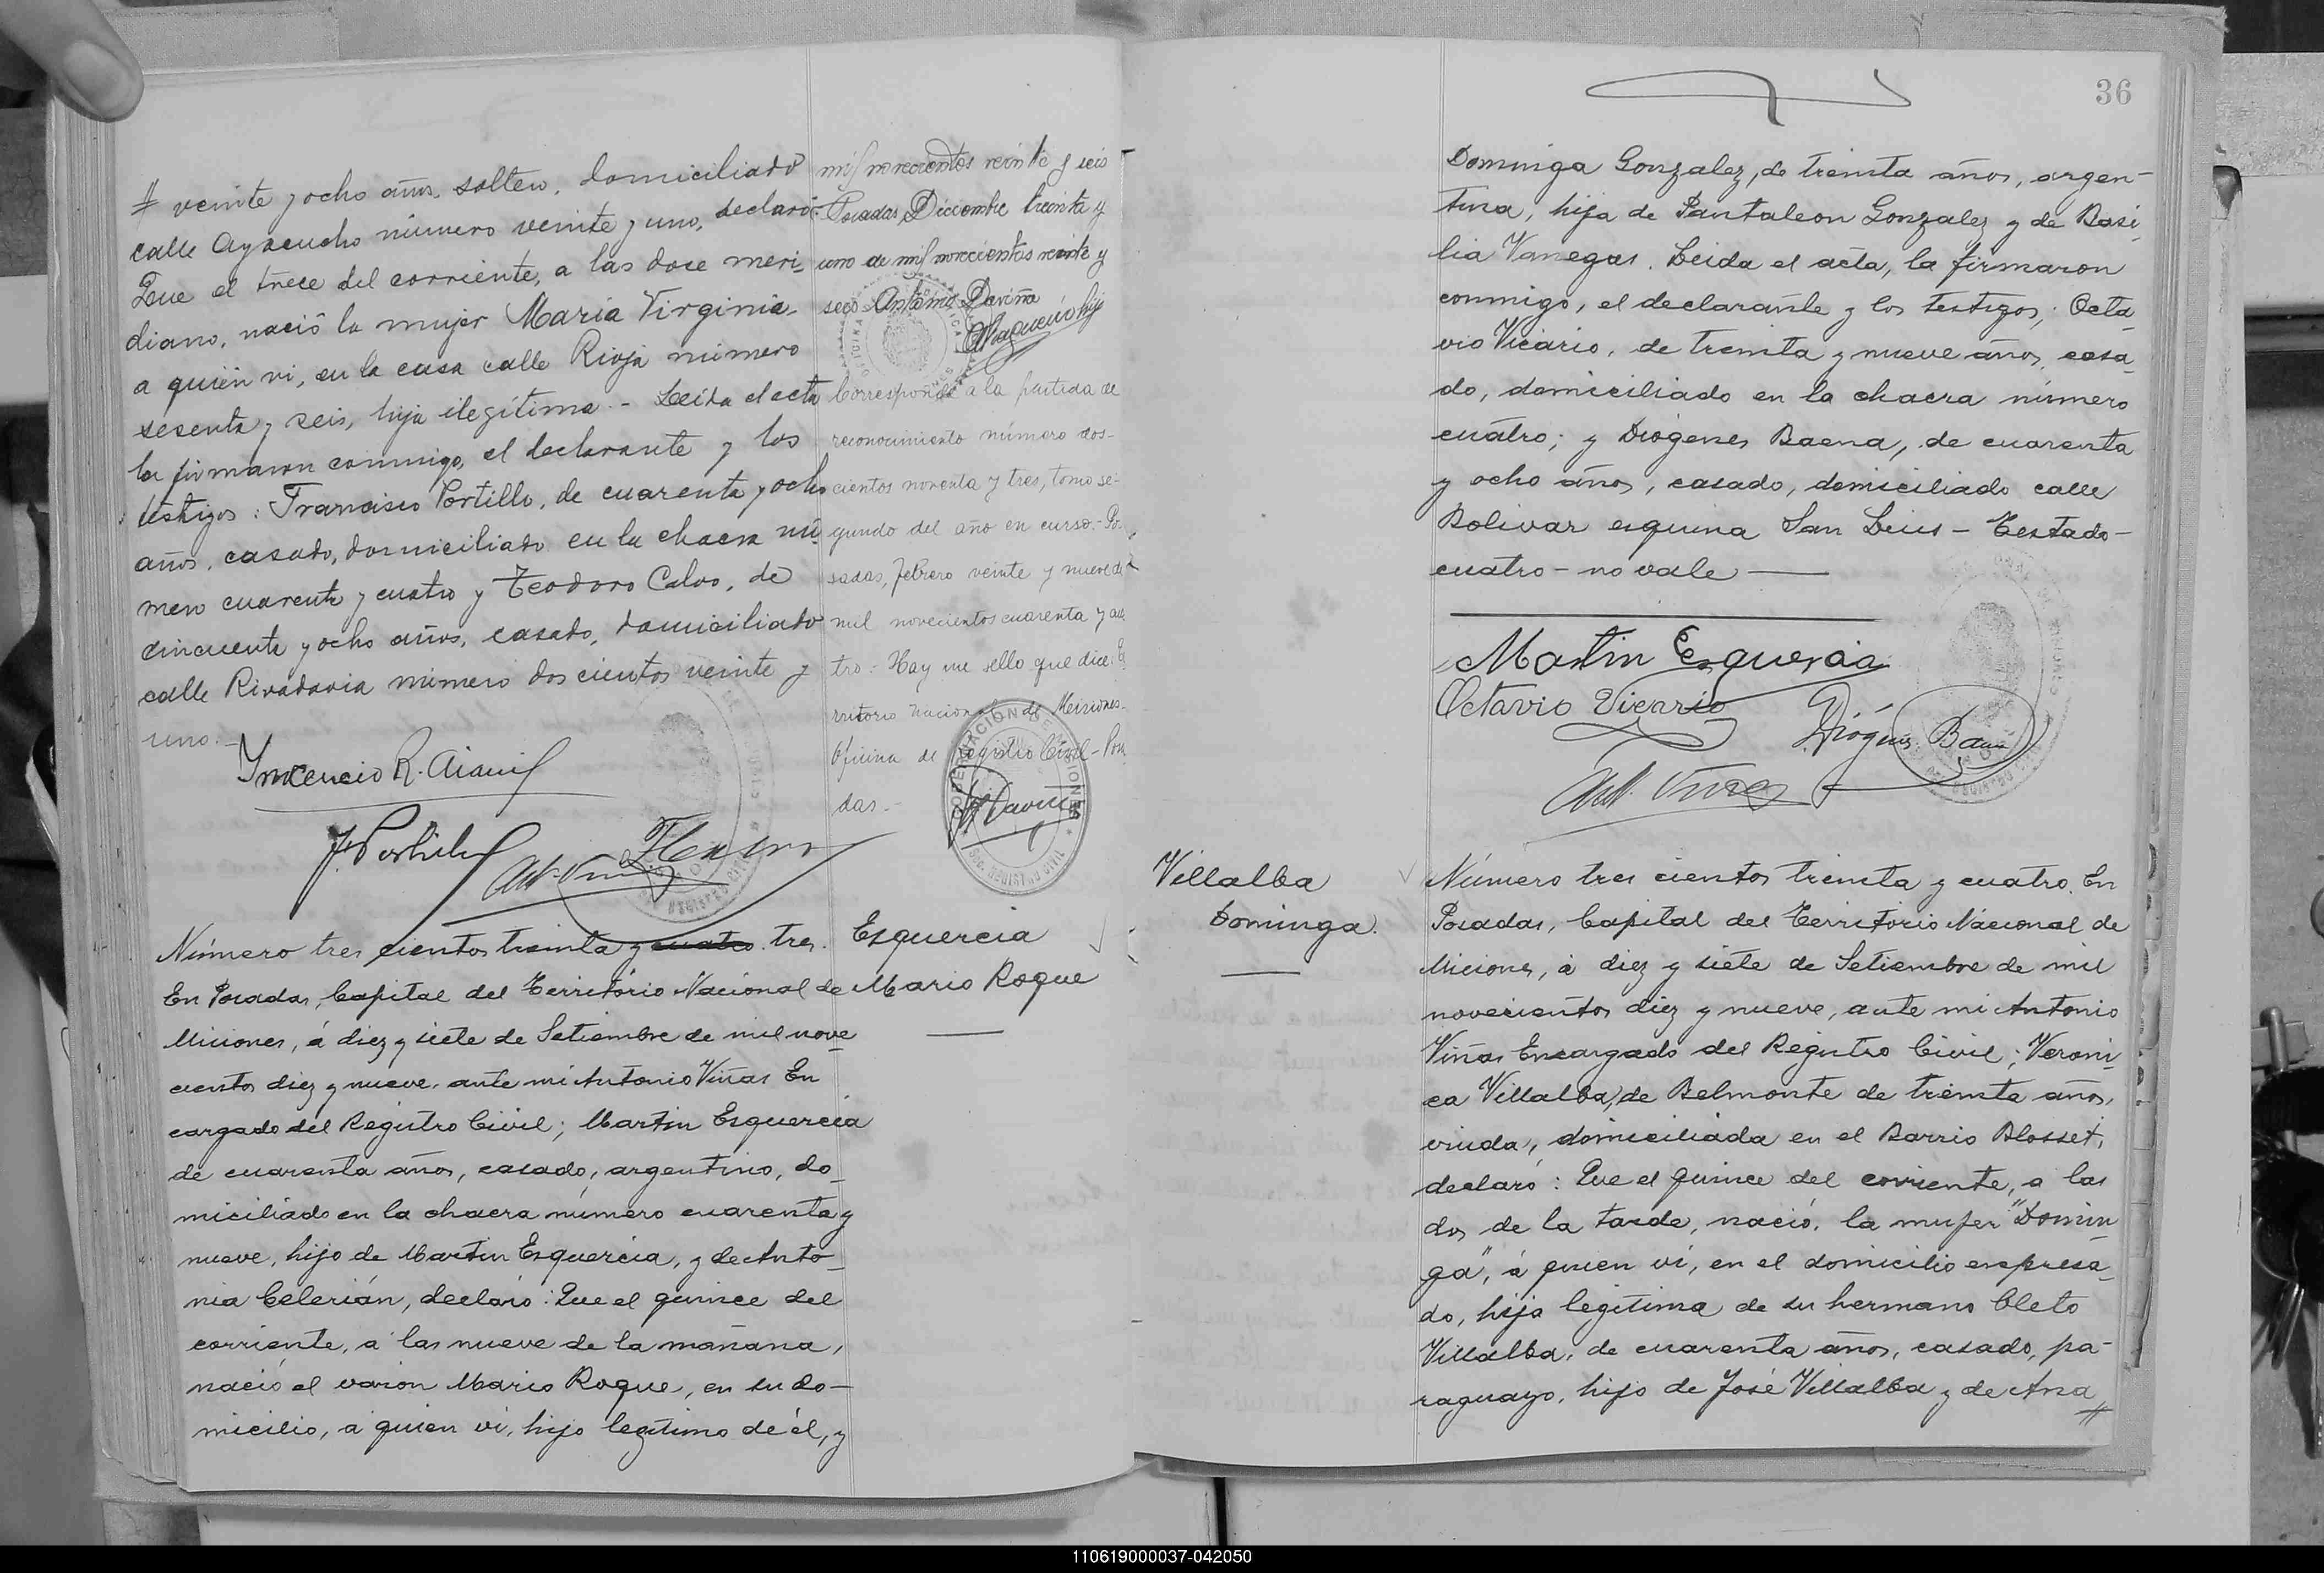 # veinte y ocho años, soltero, domiciliado
calle Ayacucho número veinte y uno, declaró:
Que el trece del corriente, a las doce meri-
diano, nació la mujer María Virginia
a quien vi, en la casa calle Rioja número
sesenta y seis, hija ilegítima.- Leída el acta
la firmaron conmigo, el declarante y los
testigos: Francisco Portillo, de cuarenta y ocho
años, casado, domiciliado en la chacra nú-
mero cuarenta y cuatro y Teodoro Calvo, de
cincuenta y ocho años, casado, domiciliado
calle Rivadavia número doscientos veinte y
uno.-
F. Portillo
Ant. Viñas
mil novecientos veinte y seis
Posadas, Diciembre treinta y
uno de mil novecientos veinte y
seis Antonio Daviña
Corresponde a la partida de
reconocimiento número dos-
cientos noventa y tres, tomo se-
gundo del año en curso.- Po-
sadas, Febrero veinte y nueve de
mil novecientos cuarenta y cua
tro.- Hay un sello que dice: Te
rritorio Nacional de Misiones-
Oficina de Registro Civil-Posa
das.-
Número tres cientos treinta y cuatro tres.
En Posadas, Capital del Territorio Nacional de
Misiones, á diez y siete de Setiembre de mil nove
cientos diez y nueve, ante mi Antonio Viñas En
cargado del Registro Civil; Martin Esquercia
de cuarenta años, casado, argentino, do_
miciliado en la chacra número cuarenta y
nueve, hijo de Martin Esquercia, y de Anto_
nia Celerián, declaró: Que el quince del
corriente, á las nueve de la mañana,
nació el varon Mario Roque, en su do-
micilio, á quien vi, hijo legítimo de él, y
Esquercia
Mario Roque
36
Dominga Gonzalez, de treinta años, argen-
tina, hija de Pantaleon Gonzalez y de Basi_
lia Vanegas. Leida el acta, la firmaron
conmigo, el declarante y los testigos; Octa_
vio Vicario, de treinta y nueve años, casa_
do, domiciliado en la chacra número
cuatro; y Diógenes Baena, de cuarenta
y ocho años, casado, domiciliado calle
Bolivar esquina San Luis - Testado-
cuatro - no vale
Martin Esquercia
Octavio Vicario
Diógenes Baena
Ant. Viñas
Villalba
Dominga.
Número tres cientos treinta y cuatro. En
Posadas, Capital del Territorio Nacional de
Misiones, á diez y siete de Setiembre de mil
novecientos diez y nueve, ante mi Antonio
Viñas Encargado del Registro Civil; Veroni_
ca Villalba, de Belmonte de treinta años,
viuda, domiciliada en el Barrio Blosset,
declaró: Que el quince del corriente, a las
dos de la tarde, nació, la mujer "Domin
ga", á quien vi, en el domicilio expresa_
do, hija legítima de su hermano Cleto
Villalba, de cuarenta años, casado, pa-
raguayo, hijo de José Villalba y de Ana
#
110619000037-042050